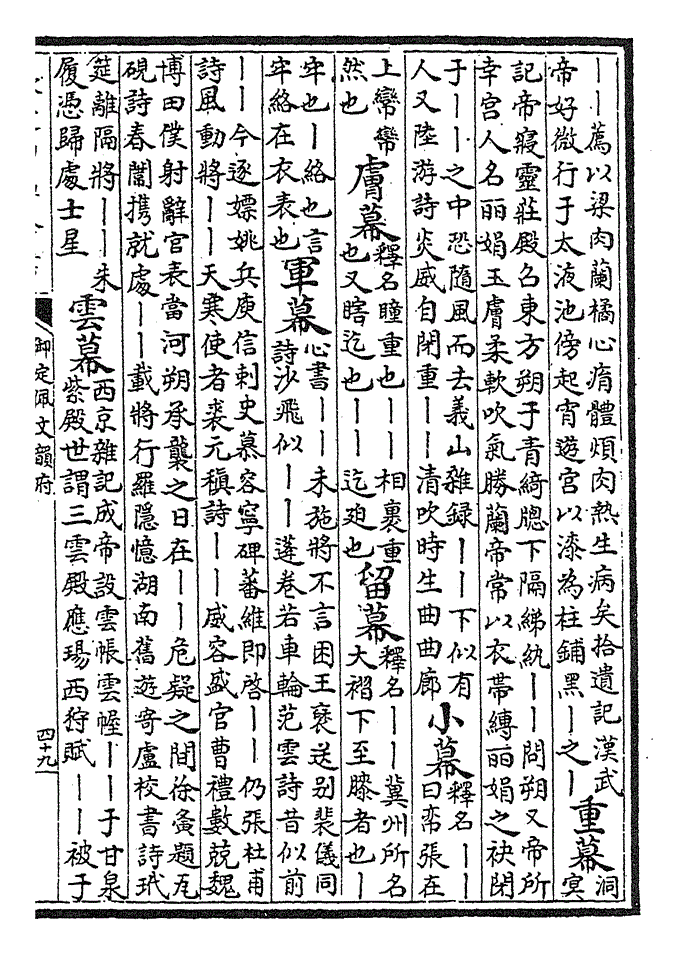 ——薦以梁肉蘭橘心痟體煩肉熱生病矣拾遺記漢武
帝好微行于太液池傍起宵遊宮以漆為柱鋪黑—之—
重幕
洞
冥
記帝寢靈莊殿召東方朔于青綺牕下隔綈紈——問朔又帝所
幸宮人名丽娟玉膚柔軟吹氣勝蘭帝常以衣帶縛丽娟之袂閉
于——之中恐隨風而去義山雜録——下似有
人又陸游詩炎威自閉重——清吹時生曲曲廊
小幕
釋名——
曰帟張在
上帟帟
然也
膚幕
釋名瞳重也——相裹重
也又瞎迄也——迄廹也
留幕
釋名——冀州所名
大褶下至膝者也—
牢也—絡也言
牢絡在衣表也
軍幕
心書——未施將不言困王裦送别裴儀同
詩沙飛似——蓬卷若車輪范雲詩昔似前
——今逐嫖姚兵庾信刺史慕容寧碑蕃維即啓——仍張杜甫
詩風動將——天寒使者裘元稹詩——威容盛官曹禮數兢魏
博田僕射辭官表當河朔承襲之日在——危疑之間徐夤題瓦
硯詩春闈攜就處——載將行羅隱憶湖南舊遊寄盧校書詩玳
筵離隔將——朱
履憑歸處士星
雲幕
西京雜記成帝設雲帳雲幄——于甘泉
紫殿世謂三雲殿應瑒西狩賦——被于
御定佩文韻府
四十九